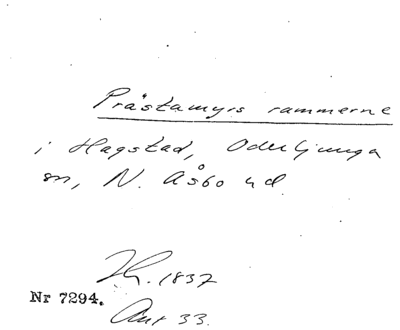 Prästamyrs rammerne
i Hagstad, Oderljunga
sn, N. Åsbo hd.
1837
Nr 7294.
33.